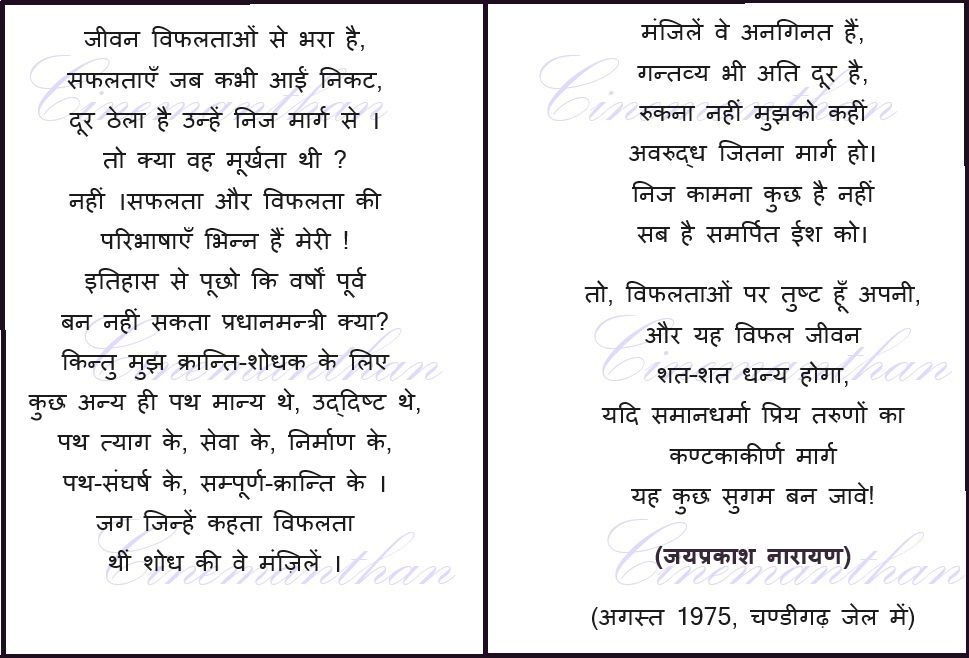 जीवन विफलताओं से भरा है,
सफलताएँ जब कभी आईं निकट,
दूर ठेला है उन्हें निज मार्ग से ।
तो क्या वह मूर्खता थी ?
नहीं ।सफलता और विफलता की
परिभाषाएँ भिन्न हैं मेरी !
इतिहास से पूछो कि वर्षों पूर्व
बन नहीं सकता प्रधानमन्त्री क्या?
किन्तु मुझ क्रान्ति-शोधक के लिए
कुछ अन्य ही पथ मान्य थे, उद्दिष्ट थे,
पथ त्याग के, सेवा के, निर्माण के,
पथ-संघर्ष के, सम्पूर्ण-क्रान्ति के ।
जग जिन्हें कहता विफलता
थीं शोध की वे मंज़िलें ।
मंजिलें वे अनगिनत हैं,
गन्तव्य भी अति दूर है,
रुकना नहीं मुझको कहीं
अवरुद्ध जितना मार्ग हो।
निज कामना कुछ है नहीं
सब है समर्पित ईश को।
तो, विफलताओं पर तुष्ट हूँ अपनी,
और यह विफल जीवन
शत-शत धन्य होगा,
यदि समानधर्मा प्रिय तरुणों का
कण्टकाकीर्ण मार्ग
यह कुछ सुगम बन जावे!
(जयप्रकाश नारायण)
(अगस्त 1975, चण्डीगढ़ जेल में)
Cinemanthan
Cinemanthan
Cinemanthan
Cinemanthan
Cinemanthan
Cinemanthan